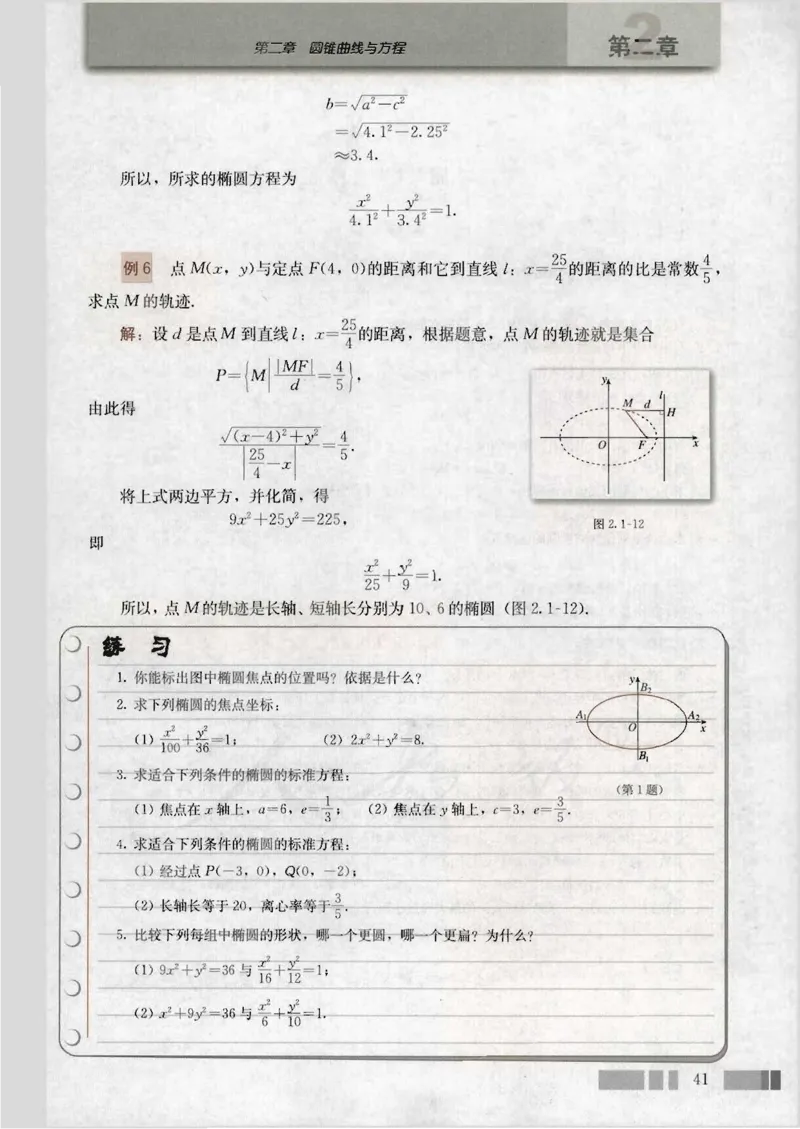 第二章 圆锥曲线与方程
第二章
b=√(a²-c²)
=√(4.1²-2.25²)
≈3.4.
所以，所求的椭圆方程为
x²/4.1²+y²/3.4²=1.
例6 点 M(x, y)与定点 F(4, 0)的距离和它到直线 l：x=25/4的距离的比是常数4/5，
求点 M 的轨迹.
解：设 d 是点 M 到直线 l：x=25/4的距离，根据题意，点 M 的轨迹就是集合
P={M||MF|/d=4/5}，
由此得
√((x-4)²+y²)/|25/4-x|=4/5.
将上式两边平方，并化简，得
9x²+25y²=225，
即
x²/25+y²/9=1.
所以，点 M 的轨迹是长轴、短轴长分别为 10、6 的椭圆（图 2.1-12）.
y
l
M d H
O F x
图 2.1-12
练 习
1. 你能标出图中椭圆焦点的位置吗？依据是什么？
2. 求下列椭圆的焦点坐标：
(1) x²/100+y²/36=1； (2) 2x²+y²=8.
3. 求适合下列条件的椭圆的标准方程：
(1) 焦点在 x 轴上，a=6，e=1/3； (2) 焦点在 y 轴上，c=3，e=3/5.
4. 求适合下列条件的椭圆的标准方程：
(1) 经过点 P(-3, 0)，Q(0, -2)；
(2) 长轴长等于 20，离心率等于3/5.
5. 比较下列每组中椭圆的形状，哪一个更圆，哪一个更扁？为什么？
(1) 9x²+y²=36 与 x²/16+y²/12=1；
(2) x²+9y²=36 与 x²/6+y²/10=1.
y
B₂
A₁ O A₂ x
B₁
（第 1 题）
41